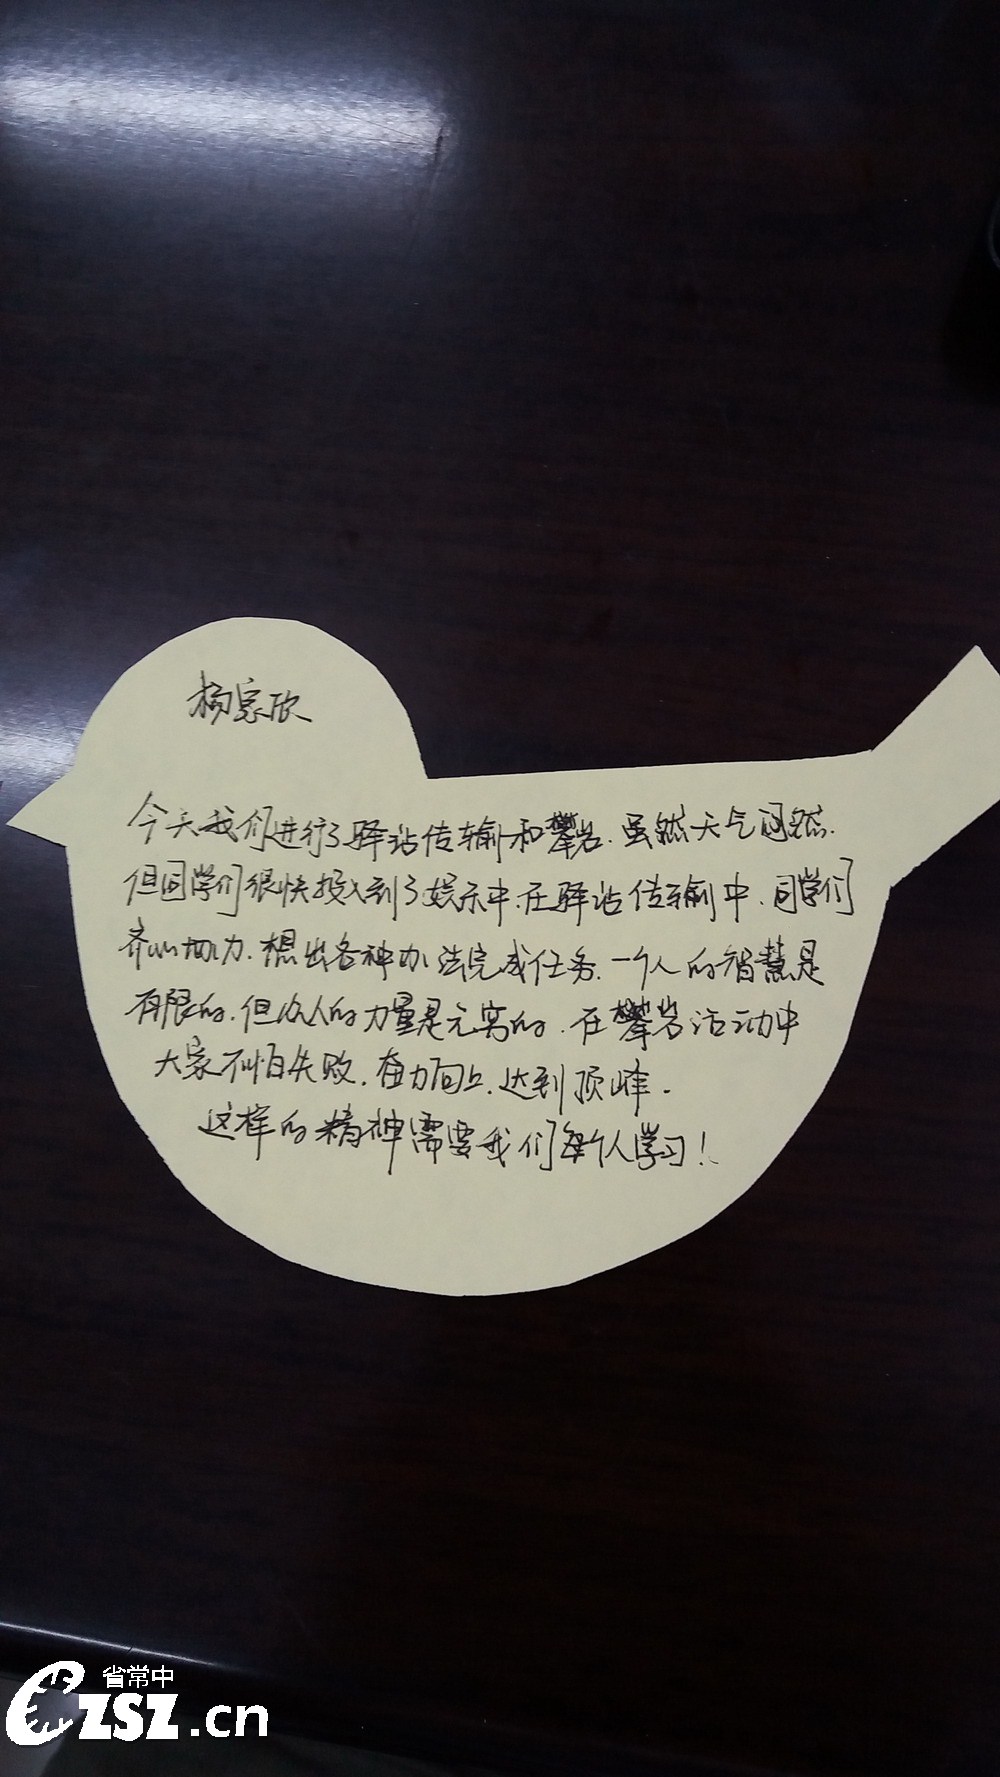 杨家欣
今天我们进行了驿站传输和攀岩.虽然天气闷热.
但同学们很快投入到了娱乐中.在驿站传输中.同学们
齐心协力.想出各种办法完成任务.一个人的智慧是
有限的.但众人的力量是无穷的.在攀岩活动中
大家不怕失败.奋力向上.达到顶峰.
这样的精神需要我们每个人学习!
省常中
CZSZ.cn